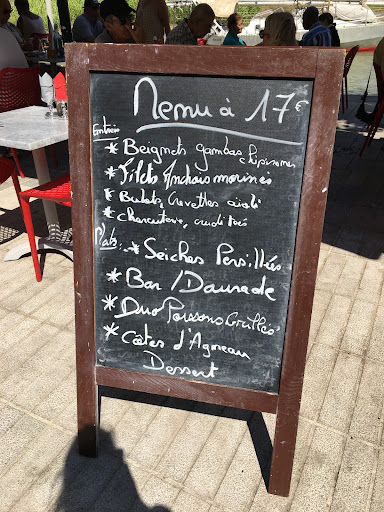 Menu à 17€
Entrées
* Beignets gambas chipirones
* Filets Anchois marinés
* Bulots, Crevettes aioli
* Charcuterie, crudités
Plats:
* Seiches Persillées
* Bar / Daurade
* Duo Poissons Grillés
* Côtes d'Agneau
Dessert